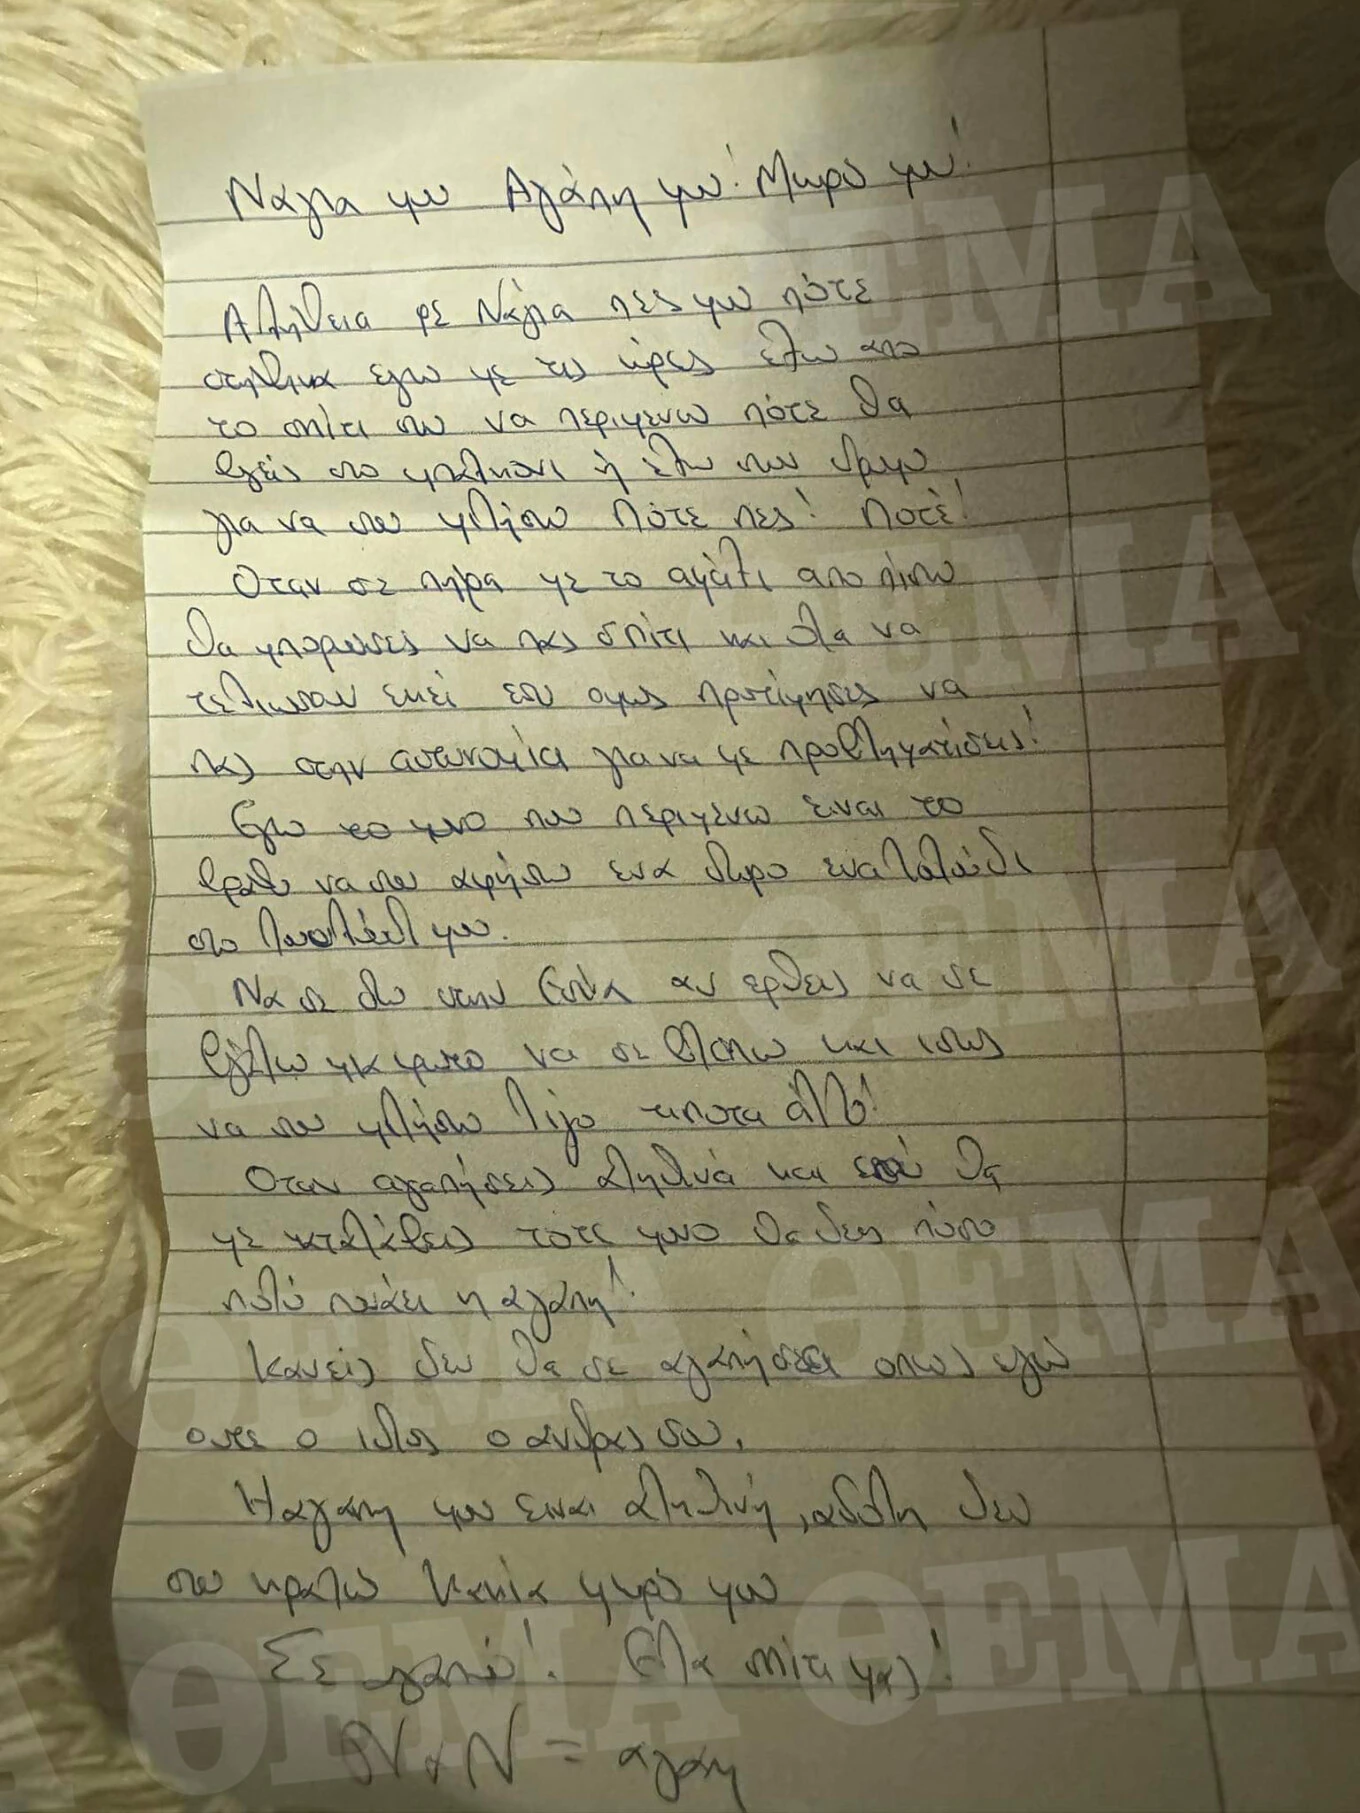 Νάγια μου Αγάπη μου! Μωρό μου!
Αλήθεια ρε Νάγια πες μου πότε
στήθηκα εγω με τις ώρες έξω απο
το σπίτι σου να περιμενω πότε θα
βγείς στο μπαλκόνι ή έξω στον δρομο
για να σου μιλήσω Πότε πες! Ποτέ!
Οταν σε πήρα με το αμάξι απο πίσω
θα μπορουσες να πας σπίτι και όλα να
τελιωσουν εκεί εσυ ομως προτίμησες να
πας στην αστυνομία για να με προβληματίσεις!
Εγω το μονο που περιμένω ειναι το
βραδυ να σου αφήσω ενα δωρο ενα λουλούδι
στο
Να σε δω στην αν ερθεις να σε
βγάλω μια φωτο να σε βλεπω και ισως
να σου μιλήσω λίγο τιποτα άλλο!
Οταν αγαπήσεις αληθινά και εσύ θα
με καταλάβεις τότε μονο θα δεις πόσο
πολύ πονάει η αγάπη!
Κανείς δεν θα σε αγαπήσει οπως εγώ
ουτε ο ιδιος ο αντρας σου.
Η αγαπη μου ειναι αληθινή, αδόλη δεν
σου κρατώ κακία μωρό μου
Σε αγαπώ! Έλα σπίτι μας!
Ν x Ν = αγαπη
ΘΕΜΑ
ΘΕΜΑ
ΘΕΜΑ ΘΕΜΑ
ΘΕΜΑ ΘΕΜΑ
ΘΕΜΑ ΘΕΜΑ